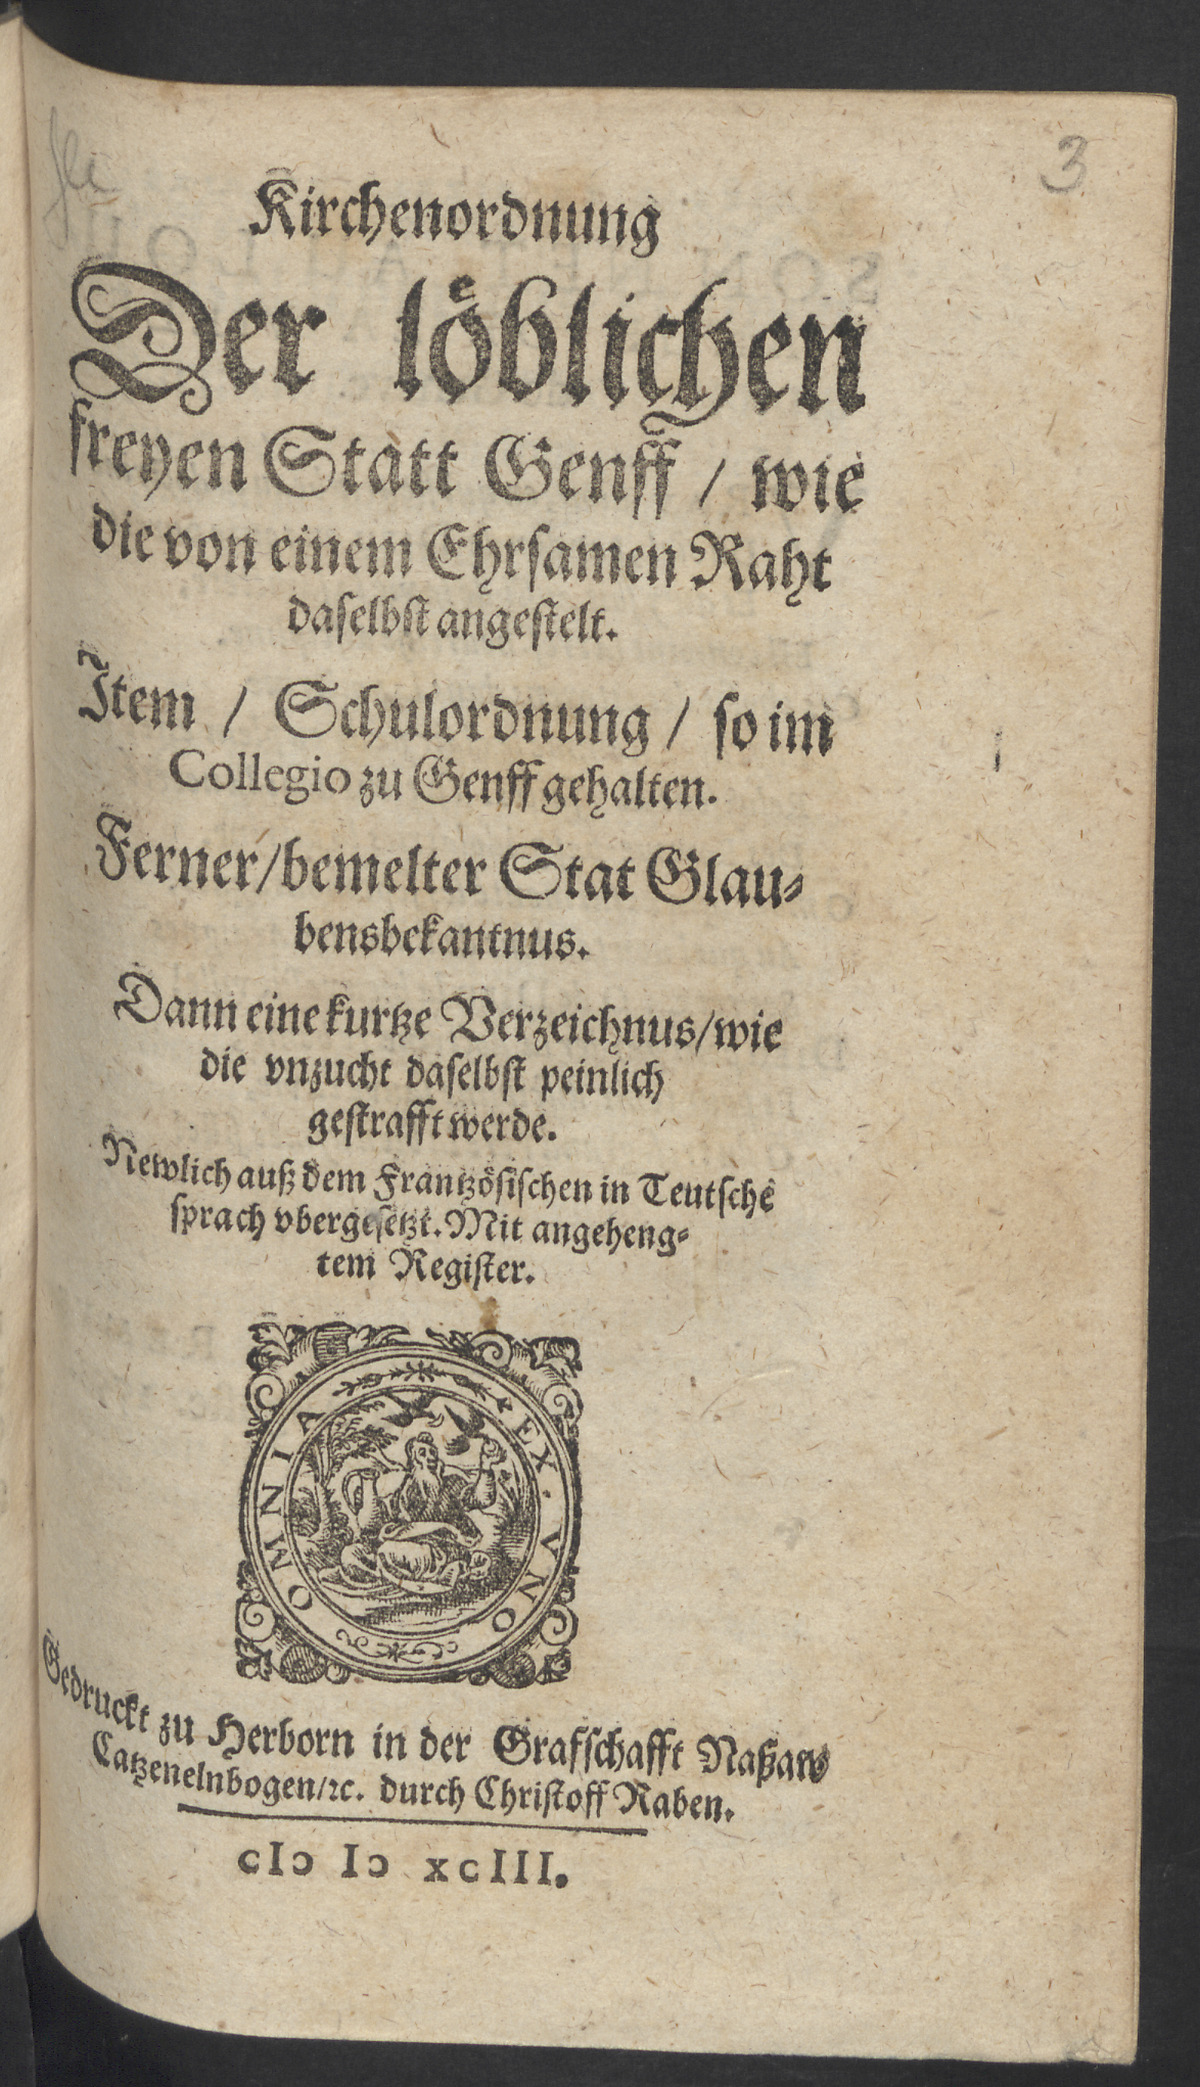 3
Kirchenordnung
Der loͤblichen
freyen Statt Genff / wie
die von einem Ehrsamen Raht
daselbst angestelt.
Item / Schulordnung / so im
Collegio zu Genff gehalten.
Ferner/bemelter Stat Glau⸗
bensbekantnus.
Dann eine kurtze Verzeichnus/wie
die vnzucht daselbst peinlich
gestrafft werde.
Newlich auß dem Frantzösischen in Teutsche
sprach vbergesetzt. Mit angeheng⸗
tem Register.
OMNIA EX. VNO
Gedruckt zu Herborn in der Grafschafft Naßaw
Catzenelnbogen/ꝛc. durch Christoff Raben.
cIɔ Iɔ xcIII.